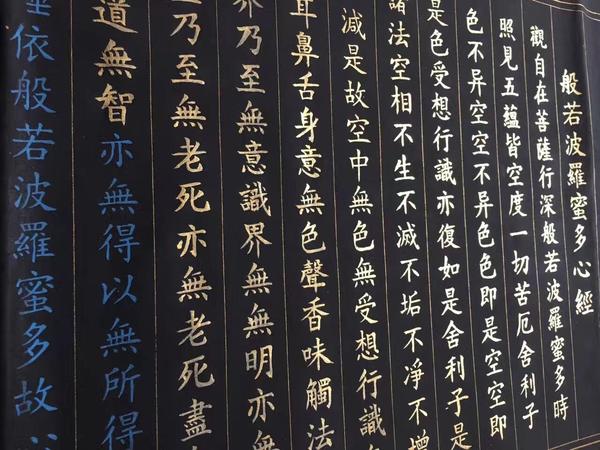 般若波羅蜜多心經
觀自在菩薩行深般若波羅蜜多時
照見五蘊皆空度一切苦厄舍利子
色不异空空不异色色即是空空即
是色受想行識亦復如是舍利子是
諸法空相不生不滅不垢不凈不增
減是故空中無色無受想行識
耳鼻舌身意無色聲香味觸法
界乃至無意識界無無明亦無
乃至無老死亦無老死盡
道無智亦無得以無所得
埵依般若波羅蜜多故